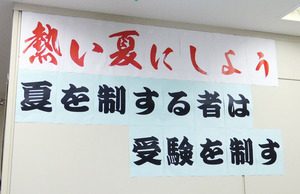 熱い夏にしよう
夏を制する者は
受験を制す